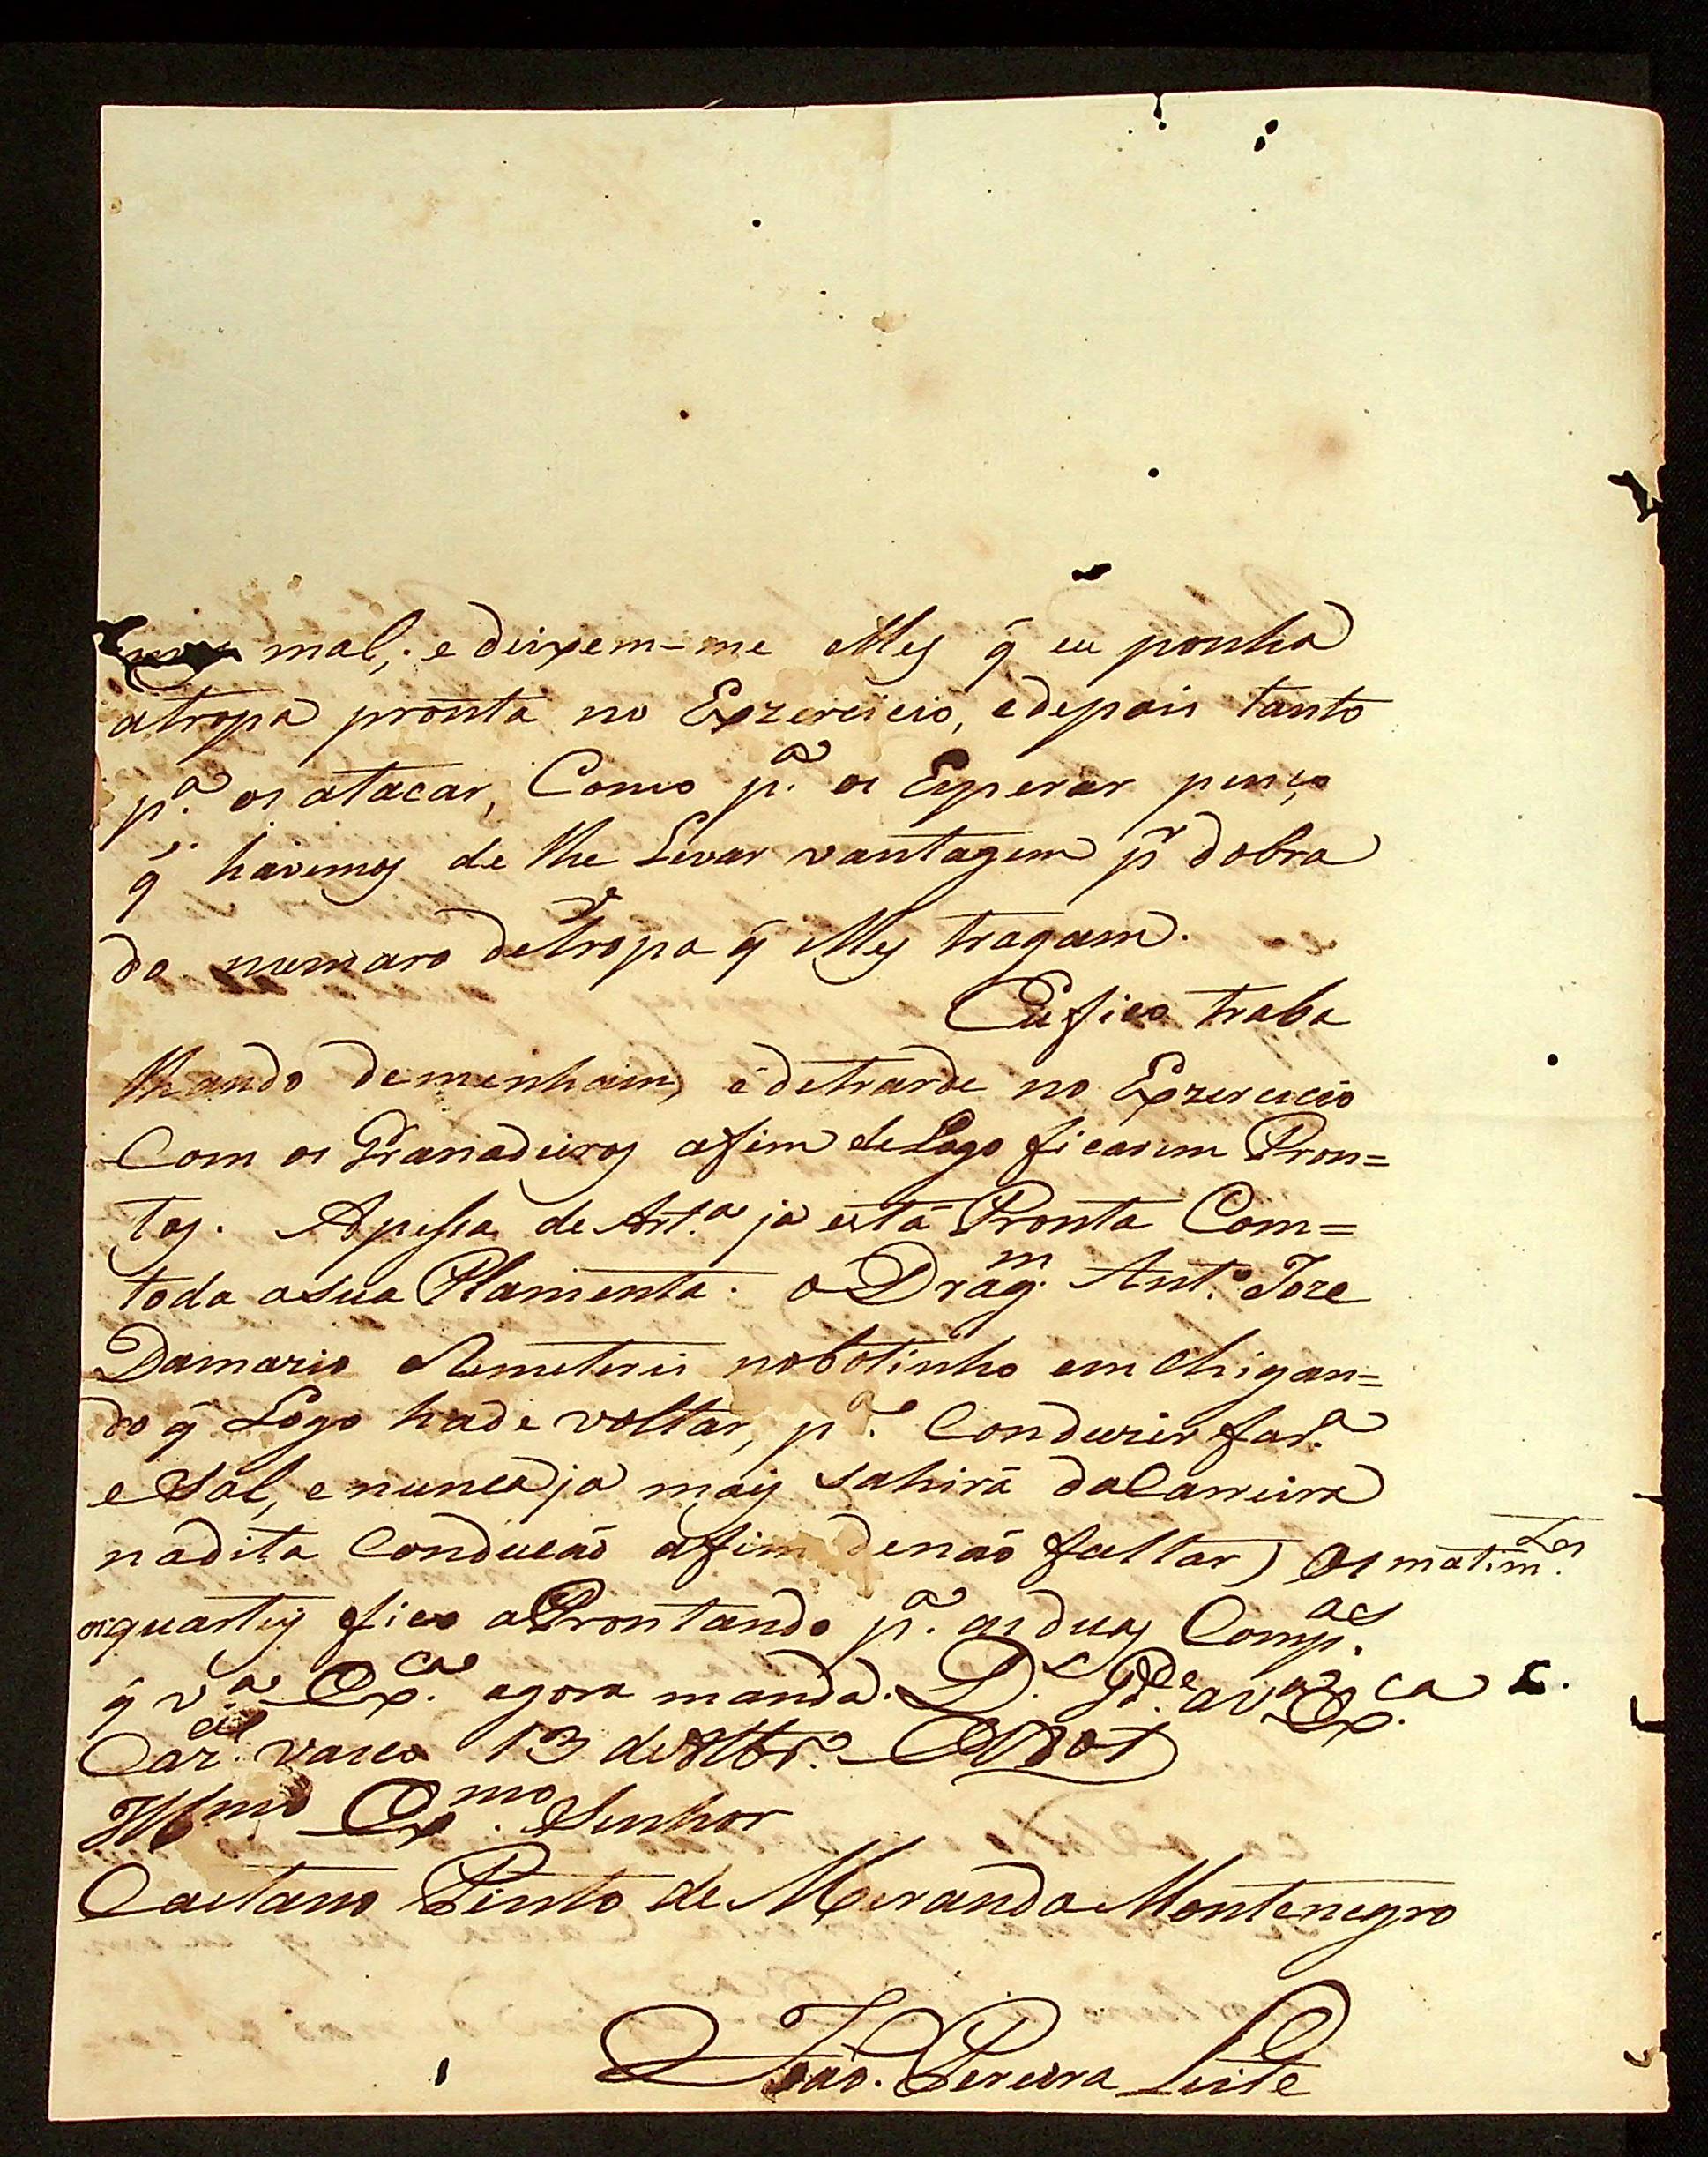 mal; e deixem-me elles q̃ eu ponha
atropa pronta no Exzercicio, edepois tanto
p.ª os atacar, Como p.ª os Esperar penço
q̃ havemos de lhe Levar vantagem p.r dobra
do numaro detropa q̃ elles tragam.
Eu fico traba
lhando demenham, e detrarde no Exzercicio
Com os Granadeiros afim de Logo ficarem Pron=
tos. Apessa de Art.ª ja está Pronta Com=
toda asua Plamenta. o Drag.m Ant.º Joze
Damazio Remeterei nobotinho em chigan=
do q̃ Logo hade voltar, p.ª Conduzir far.ª
e Sal, e nunca ja mais sahirá daCarreira
nadita Conducaõ afim denaõ faltar, Os matim.tos
os quarteis fico aProntando p.ª as duas Comp.as
q̃ v.ª Ex.ca agora manda. D.s G.de av.ª Ex.ca
Caz.al vasco 13 de
Ill.mo Ex.mo Senhor
Caetano Pinto de Meranda Montenegro
João Pereira Leite